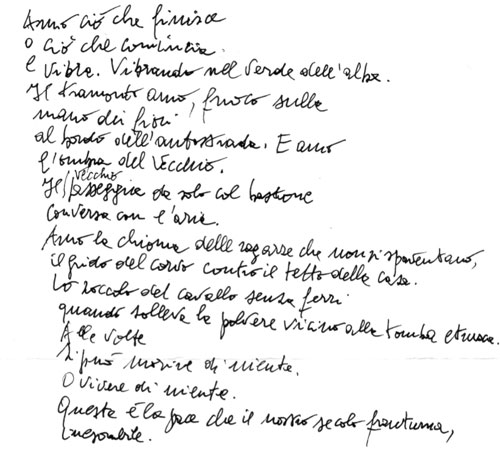 Amo ciò che finisce
o ciò che comincia.
E vibra. Vibrando nel verde dell'alba.
Il tramonto amo, fuoco sulle
mano dei fiori
al bordo dell'autostrada. E amo
l'ombra del vecchio.
Il vecchio passeggia da solo col bastone
conversa con l'aria.
Amo la chioma delle ragazze che non si spaventano,
il grido del corvo contro il tetto della casa.
Lo zoccolo del cavallo senza ferri
quando solleva la polvere vicino alla tomba etrusca.
Alle volte
si può morire di niente.
O vivere di niente.
Questa è la pace che il nostro secolo frantuma,
inesorabile.